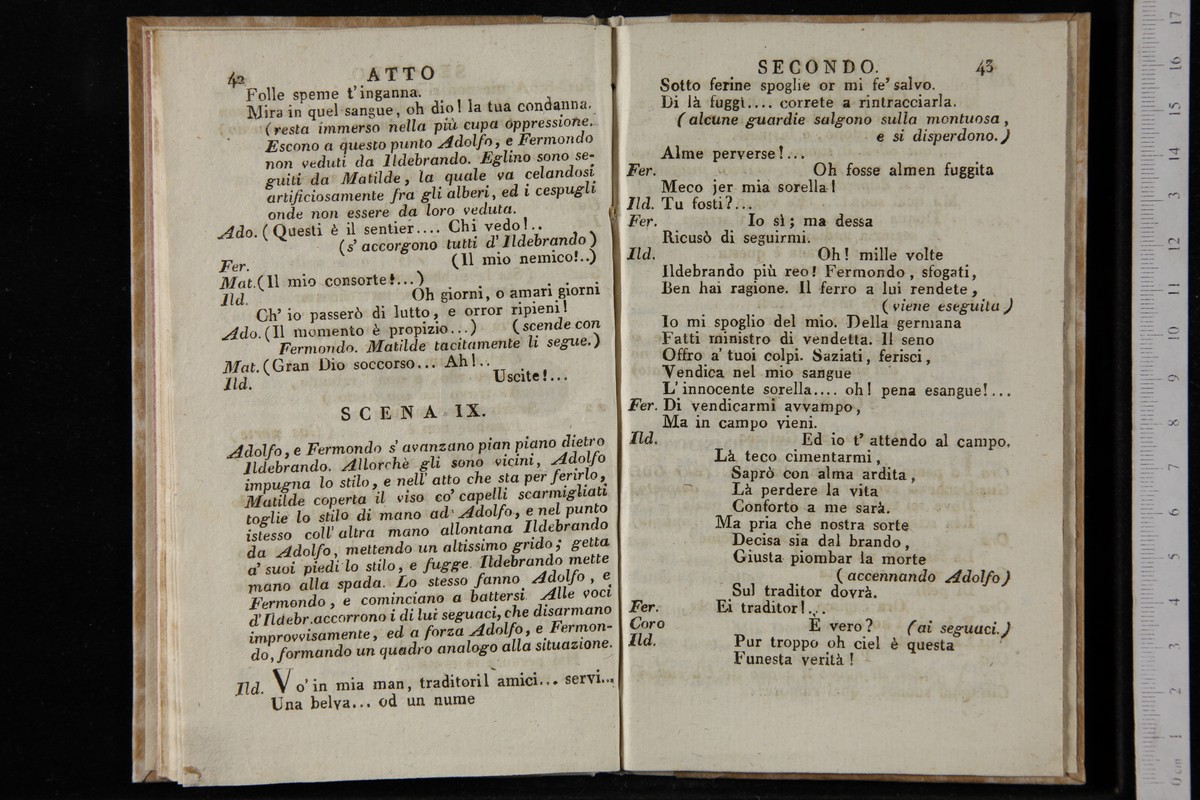 42
ATTO
Folle speme t'inganna.
Mira in quel sangue, oh dio! la tua condanna.
(resta immerso nella più cupa oppressione.
Escono a questo punto Adolfo, e Fermondo
non veduti da Ildebrando. Eglino sono se-
guiti da Matilde, la quale va celandosi
artificiosamente fra gli alberi, ed i cespugli
onde non essere da loro veduta.
Ado. (Questi è il sentier.... Chi vedo!..
(s'accorgono tutti d'Ildebrando)
Fer. (Il mio nemico!..)
Mat. (Il mio consorte!...)
Ild. Oh giorni, o amari giorni
Ch' io passerò di lutto, e orror ripieni!
Ado. (Il momento è propizio...) (scende con
Fermondo. Matilde tacitamente li segue.)
Mat. (Gran Dio soccorso... Ah!..
Ild. Uscite!...
SCENA IX.
Adolfo, e Fermondo s'avanzano pian piano dietro
Ildebrando. Allorchè gli sono vicini, Adolfo
impugna lo stilo, e nell' atto che sta per ferirlo,
Matilde coperta il viso co' capelli scarmigliati
toglie lo stilo di mano ad' Adolfo, e nel punto
istesso coll' altra mano allontana Ildebrando
da Adolfo, mettendo un altissimo grido; getta
a' suoi piedi lo stilo, e fugge. Ildebrando mette
mano alla spada. Lo stesso fanno Adolfo, e
Fermondo, e cominciano a battersi. Alle voci
d'Ildebr. accorrono i di lui seguaci, che disarmano
improvvisamente, ed a forza Adolfo, e Fermon-
do, formando un quadro analogo alla situazione.
Ild. Vo' in mia man, traditori! amici... servi...
Una belva... od un nume
SECONDO. 43
Sotto ferine spoglie or mi fe' salvo.
Di là fuggì.... correte a rintracciarla.
(alcune guardie salgono sulla montuosa,
e si disperdono.)
Alme perverse!...
Fer. Oh fosse almen fuggita
Meco jer mia sorella!
Ild. Tu fosti?...
Fer. Io sì; ma dessa
Ricusò di seguirmi.
Ild. Oh! mille volte
Ildebrando più reo! Fermondo, sfogati,
Ben hai ragione. Il ferro a lui rendete,
(viene eseguita)
Io mi spoglio del mio. Della germana
Fatti ministro di vendetta. Il seno
Offro a' tuoi colpi. Saziati, ferisci,
Vendica nel mio sangue
L' innocente sorella.... oh! pena esangue!...
Fer. Di vendicarmi avvampo,
Ma in campo vieni.
Ild. Ed io t' attendo al campo.
Là teco cimentarmi,
Saprò con alma ardita,
Là perdere la vita
Conforto a me sarà.
Ma pria che nostra sorte
Decisa sia dal brando,
Giusta piombar la morte
(accennando Adolfo)
Sul traditor dovrà.
Fer. Ei traditor!...
Coro È vero? (ai seguaci.)
Ild. Pur troppo oh ciel è questa
Funesta verità!